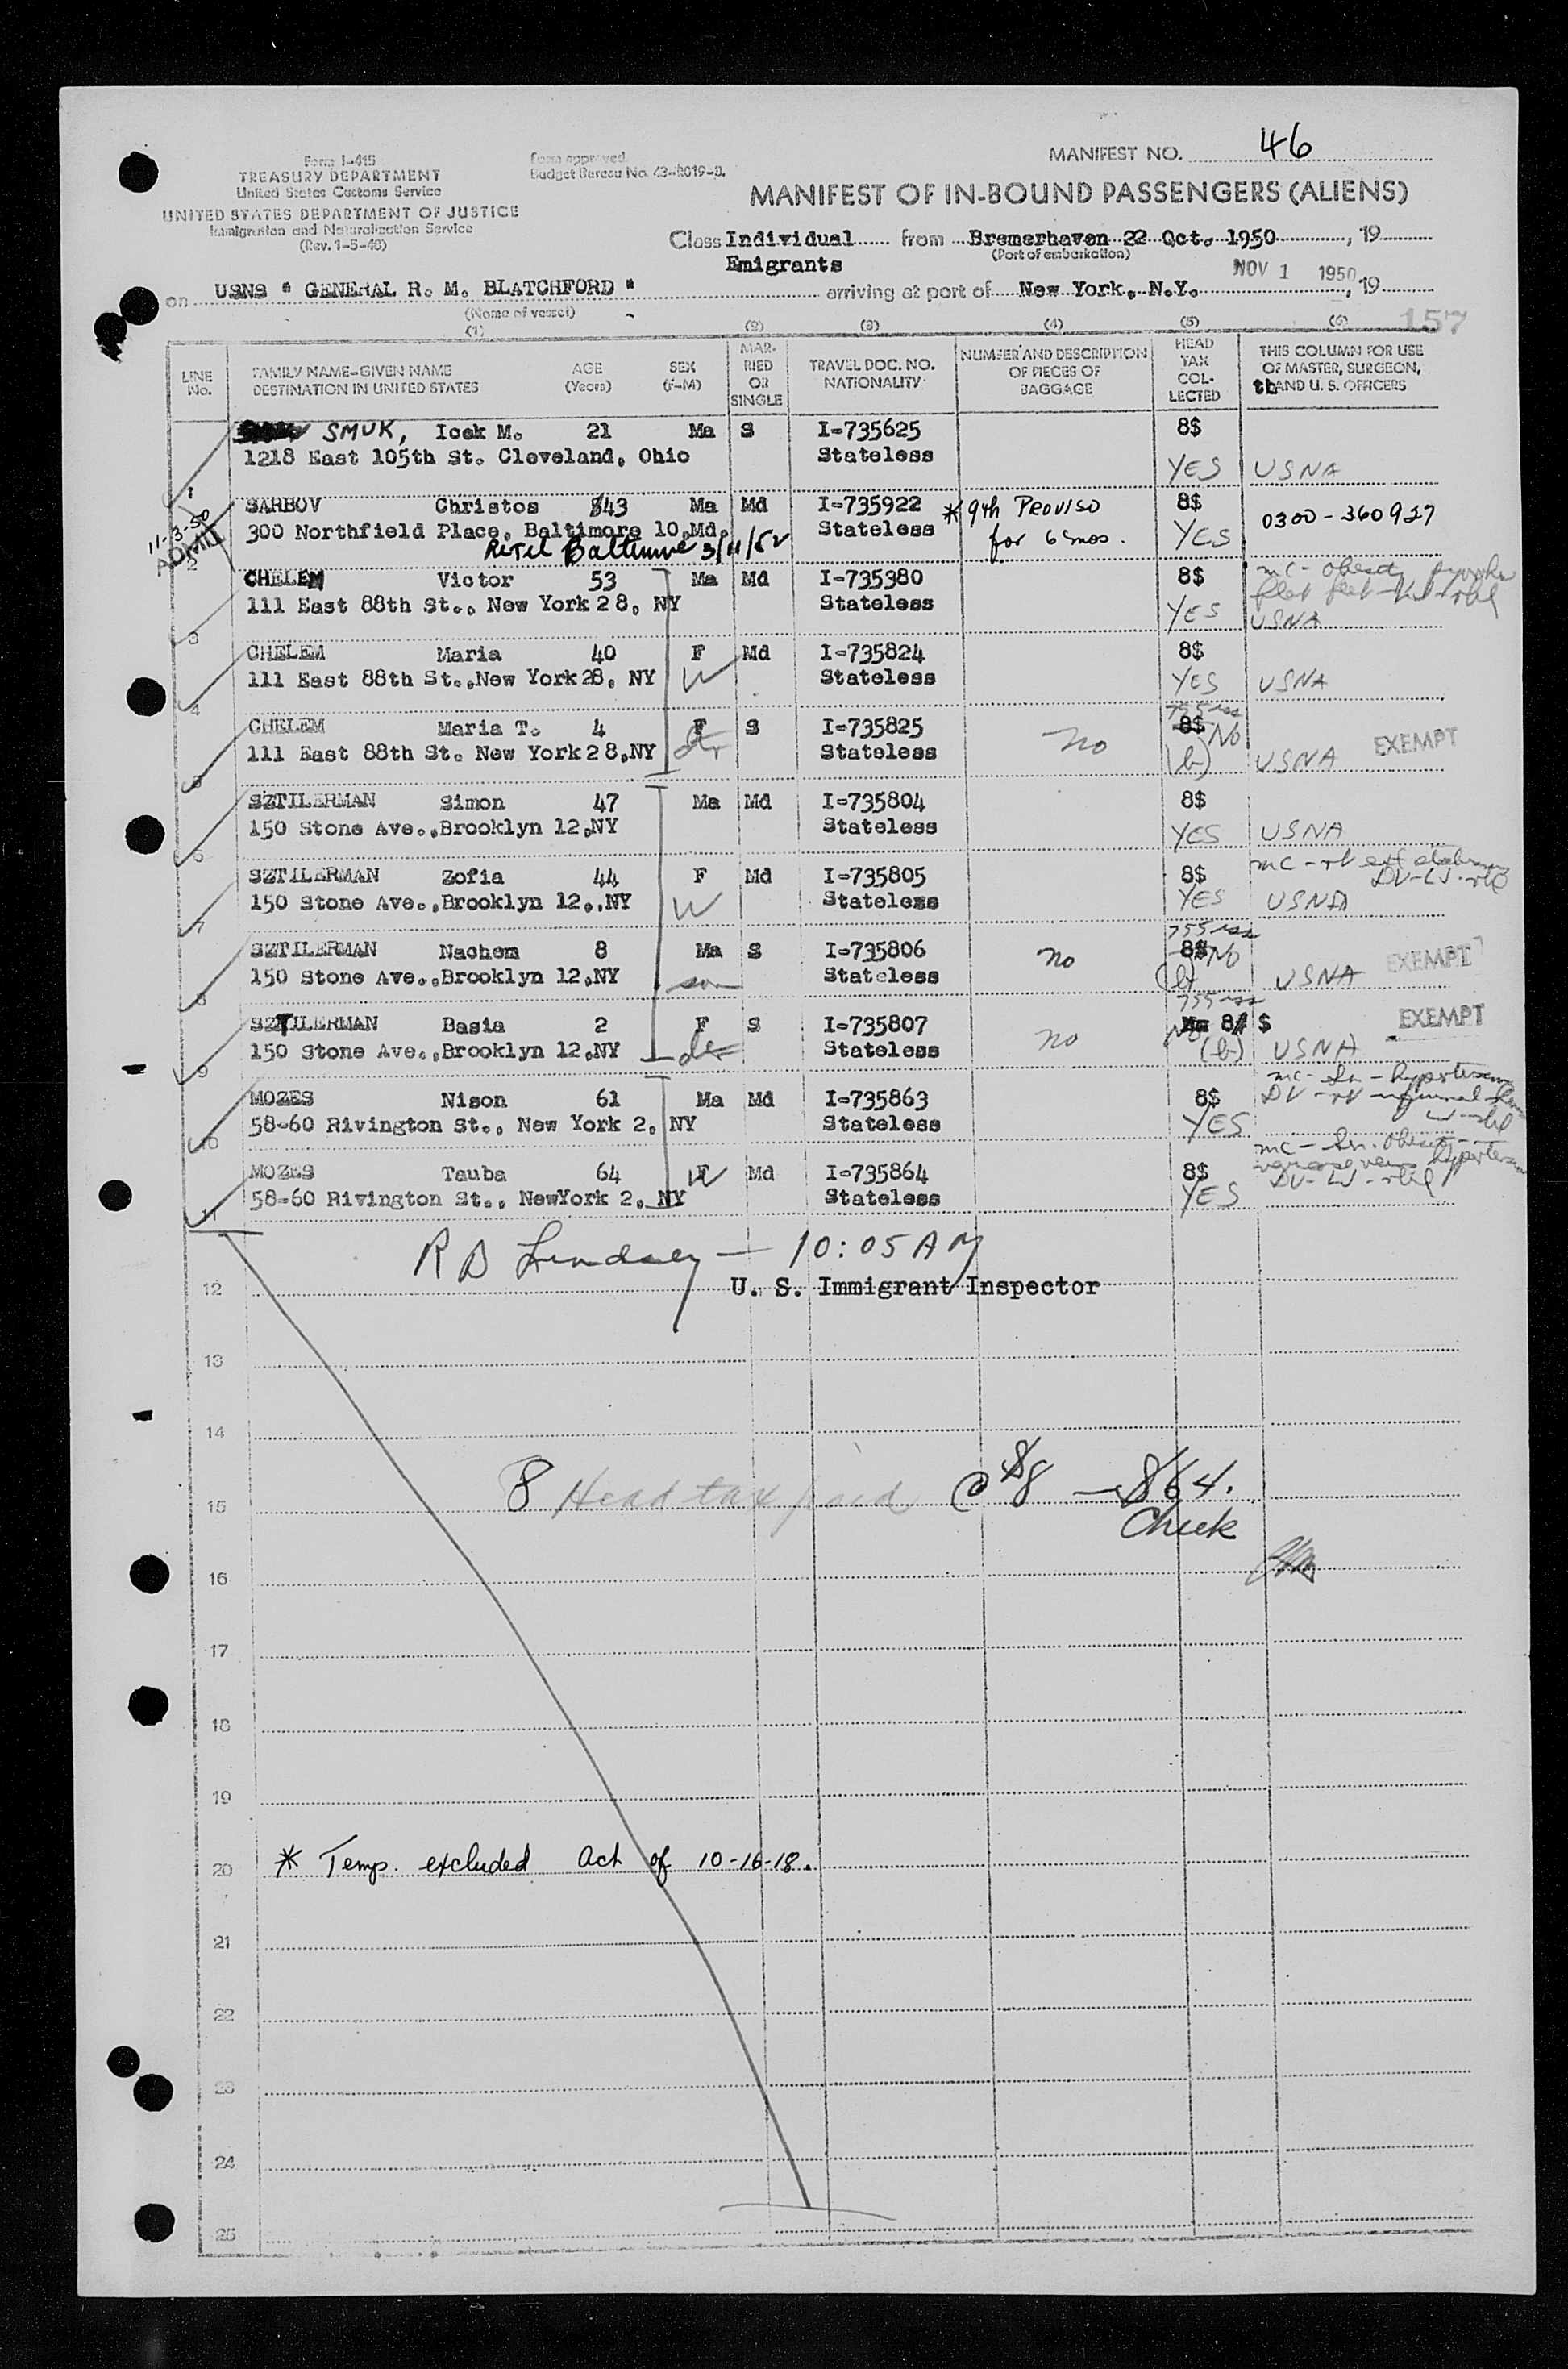 MANIFEST NO. 46
Form I-415
TREASURY DEPARTMENT
United States Customs Service
UNITED STATES DEPARTMENT OF JUSTICE
Immigration and Naturalization Service
(Rev. 1-5-48)
Form approved.
Budget Bureau No. 43-R019-3.
MANIFEST OF IN-BOUND PASSENGERS (ALIENS)
Class Individual from Bremerhaven 22 Oct. 1950, 19
Emigrants (Port of embarkation)
NOV 1 1950
on USNS " GENERAL R. M. BLATCHFORD " arriving at port of New York, N.Y., 19
(Name of vessel)
157
(1) (2) (3) (4) (5) (6)
LINE No. FAMILY NAME-GIVEN NAME DESTINATION IN UNITED STATES AGE (Years) SEX (F-M) MARRIED OR SINGLE TRAVEL DOC. NO. NATIONALITY NUMBER AND DESCRIPTION OF PIECES OF BAGGAGE HEAD TAX COLLECTED THIS COLUMN FOR USE OF MASTER, SURGEON, AND U. S. OFFICERS
SMUK, Icek M. 21 Ma S I-735625 8$
1218 East 105th St. Cleveland, Ohio Stateless YES USNA
1
SARBOV Christos 43 Ma Md I-735922 * 9th PROVISO 8$
300 Northfield Place, Baltimore 10,Md. Stateless for 6 mos. YES 0300-360927
11-3-50 ADMIT Baltimore 3/11/52
2
CHELEM Victor 53 Ma Md I-735380 8$ mc- obesity
111 East 88th St., New York 28, NY Stateless YES flat feet
USNA
3
CHELEM Maria 40 F Md I-735824 8$
111 East 88th St.,New York 28, NY W Stateless YES USNA
4
CHELEM Maria T. 4 F S I-735825 8$ No
111 East 88th St. New York 28,NY Stateless no (b) USNA EXEMPT
5
SZTILERMAN Simon 47 Ma Md I-735804 8$
150 Stone Ave.,Brooklyn 12,NY Stateless YES USNA
6
SZTILERMAN Zofia 44 F Md I-735805 8$
150 Stone Ave.,Brooklyn 12,.NY W Stateless YES USNA
7
SZTILERMAN Nachem 8 Ma S I-735806 no 8$ No
150 Stone Ave.,Brooklyn 12,NY son Stateless (b) USNA EXEMPT
8
SZTILERMAN Basia 2 F S I-735807 no 8 $ No EXEMPT
150 Stone Ave.,Brooklyn 12,NY Stateless (b) USNA
9
MOZES Nison 61 Ma Md I-735863 8$
58-60 Rivington St., New York 2, NY Stateless YES
10
MOZES Tauba 64 F W Md I-735864 8$
58-60 Rivington St., NewYork 2, NY Stateless YES
11
R B Lindsey — 10:05 AM
12 U. S. Immigrant Inspector
13
14
15 8 Head tax paid @ $8 — $64.
Check
16
17
18
19
20 * Temp. excluded Act of 10-16-18.
21
22
23
24
25